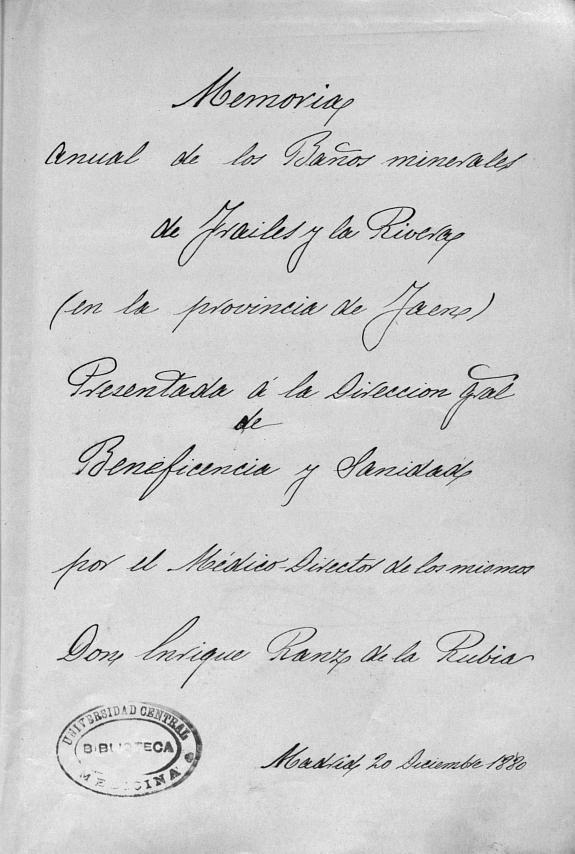 Memoria
anual de los Baños minerales
de Frailes y la Rivera
(en la provincia de Jaen)
Presentada á la Direccion Gral
de
Beneficencia y Sanidad
por el Médico-Director de los mismos
Don Enrique Ranz de la Rubia
Madrid 20 Diciembre 1880
UNIVERSIDAD CENTRAL
BIBLIOTECA
MEDICINA